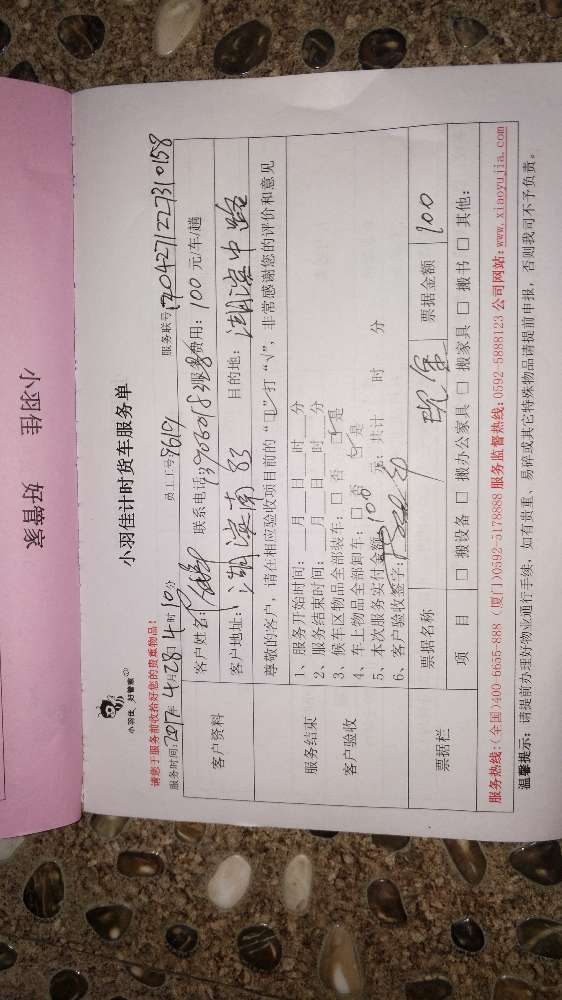 小羽佳 好管家
小羽佳 好管家
小羽佳计时货车服务单
请您于服务前收拾好您的贵重物品!
服务时间:2017年4月28日14时10分 员工工号:9619 服务联号:170427122731 0158
客户资料
客户姓名: 联系电话: 服务费用: 100 元/车/趟
客户地址: 湖滨南 83 目的地: 湖滨中路
尊敬的客户,请在相应验收项目前的“□”打“√”,非常感谢您的评价和意见
服务结束
客户验收
1、服务开始时间: 月 日 时 分
2、服务结束时间: 月 日 时 分
3、候车区物品全部装车:□ 否 ☑ 是
4、车上物品全部卸车:□ 否 ☑ 是
5、本次服务实付金额: 100 元;共计 时 分
6、客户验收签字:
票据栏
票据名称 现金 票据金额 100
项 目 □ 搬设备 □ 搬办公家具 □ 搬家具 □ 搬书 □ 其他:
服务热线:(全国)400-6655-888 (厦门)0592-5178888 服务监督热线:0592-5888123 公司网站:www.xiaoyujia.com
温馨提示:请提前办理好物业通行手续,如有贵重、易碎或其它特殊物品请提前申报,否则我司不予负责。